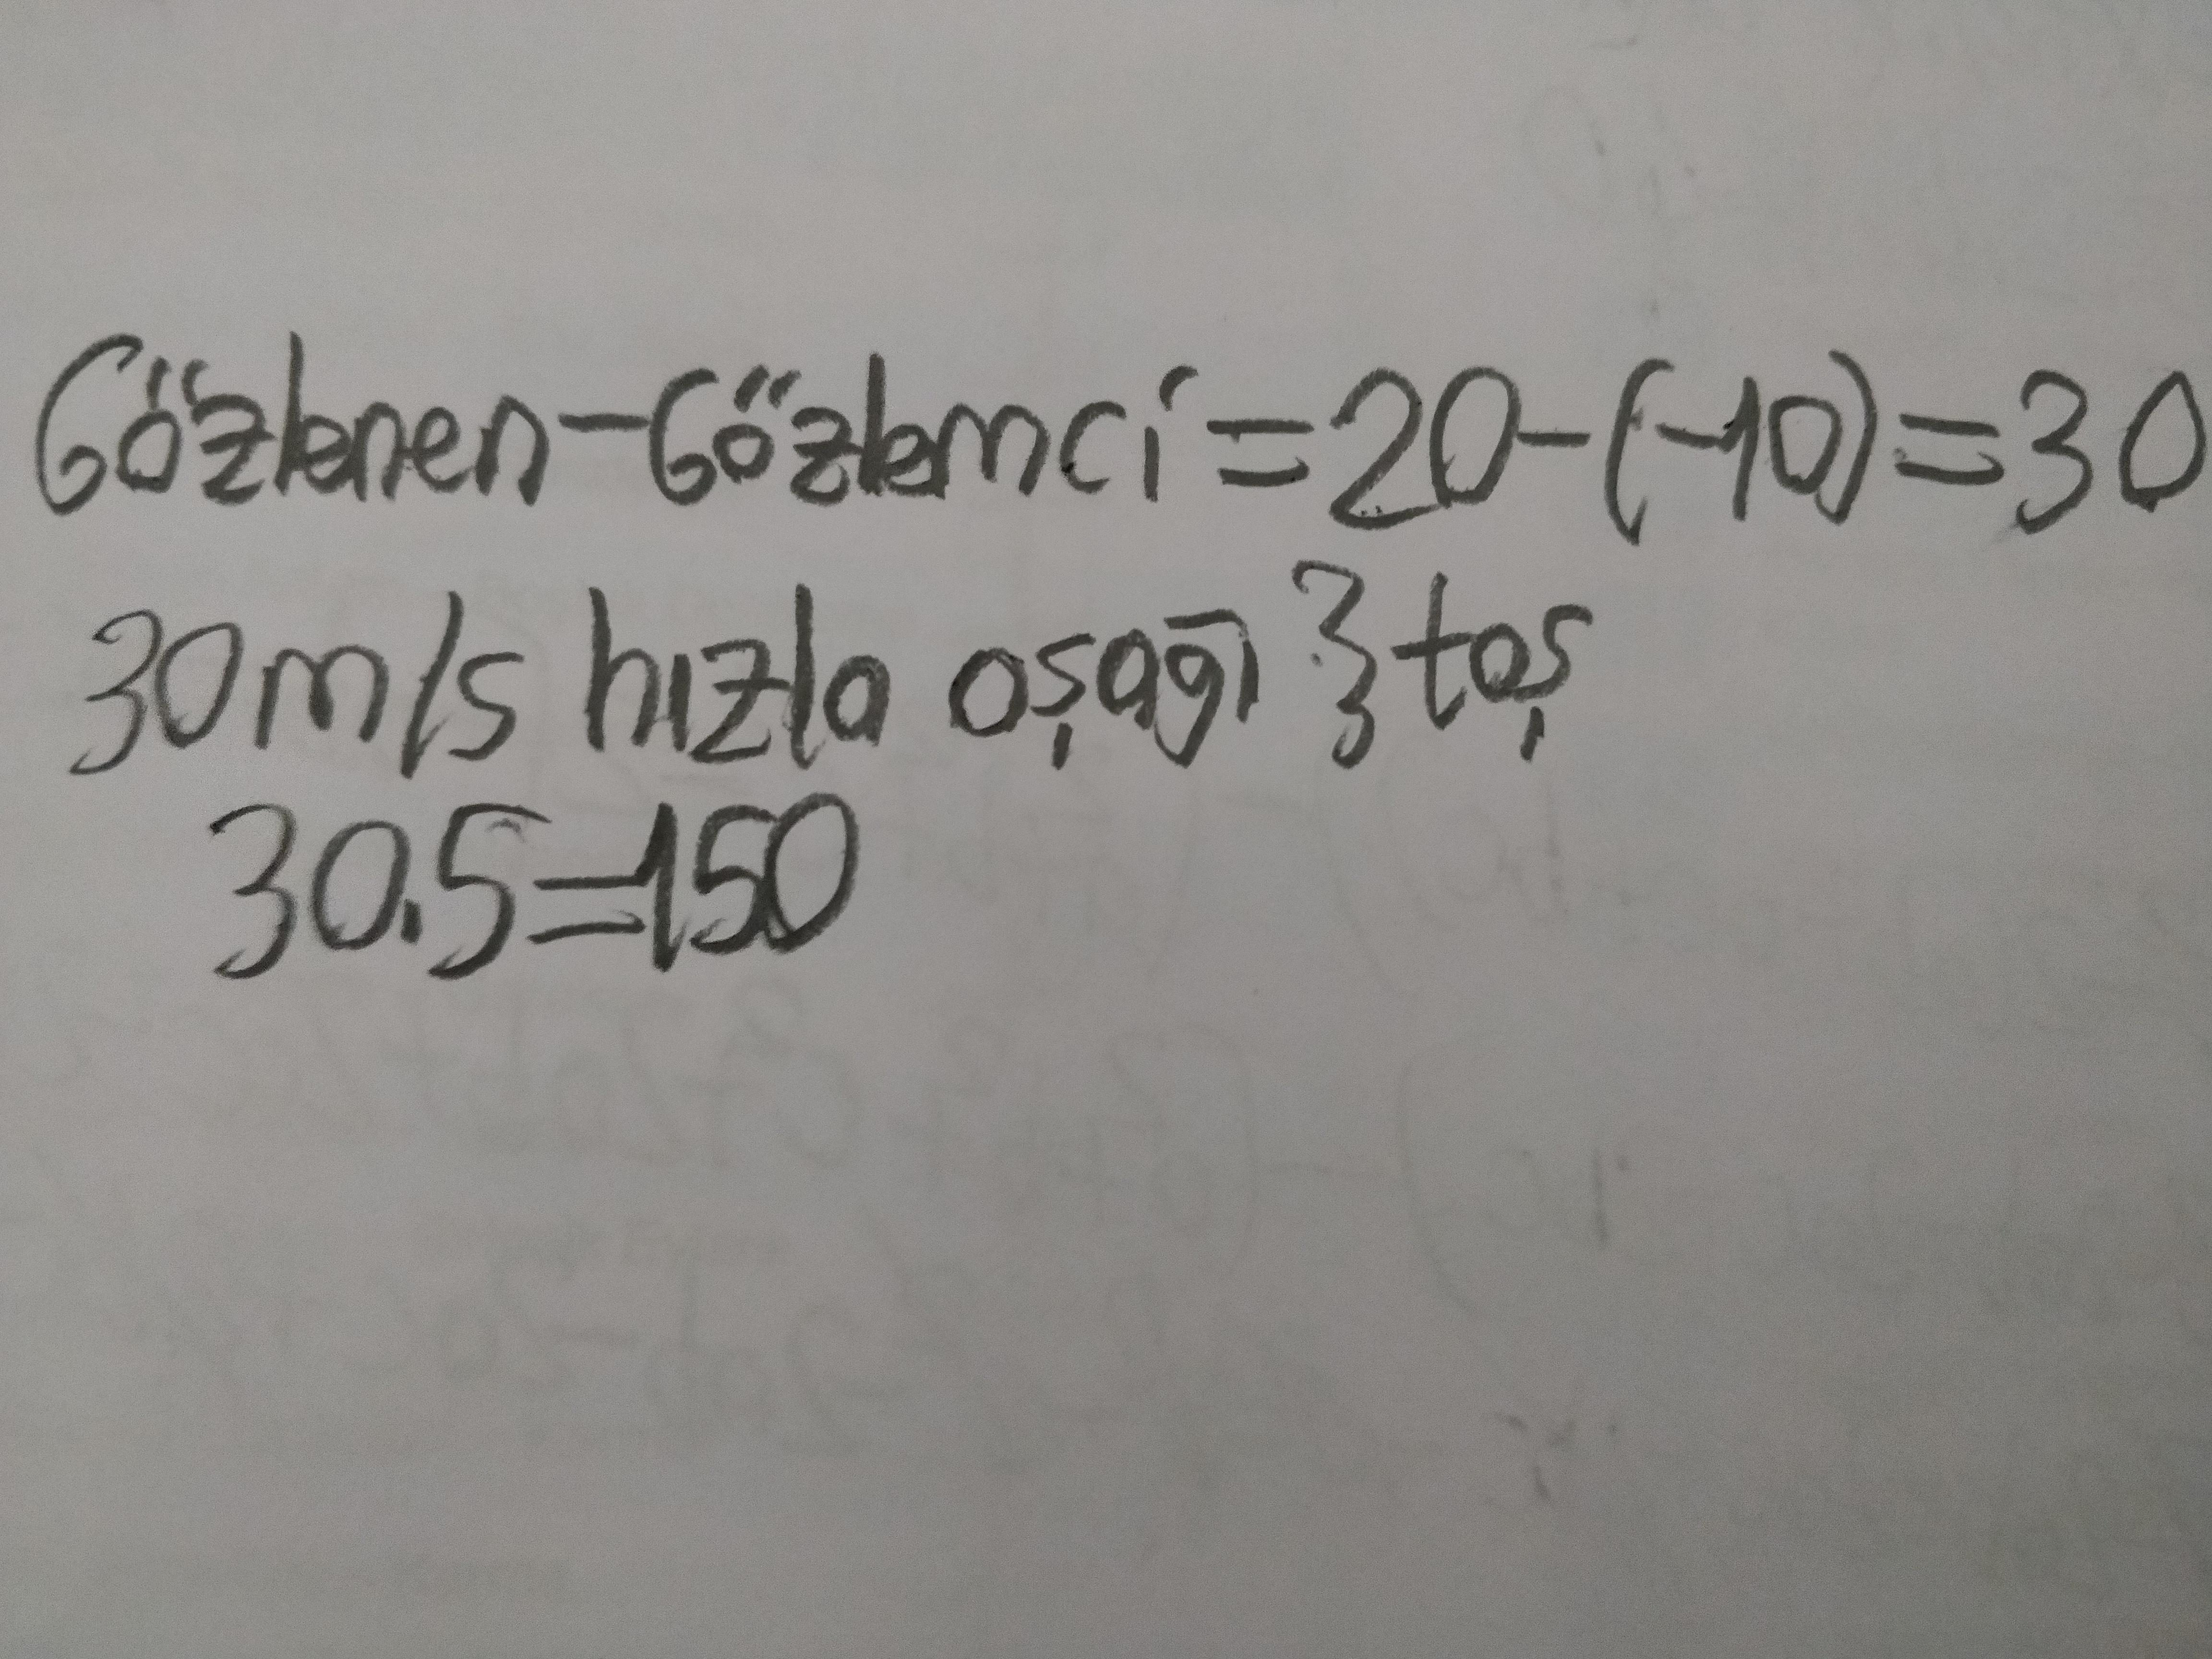 Gözlenen-Gözlemci=20-(-10)=30
30m/s hızla aşağı } taş
30.5=150